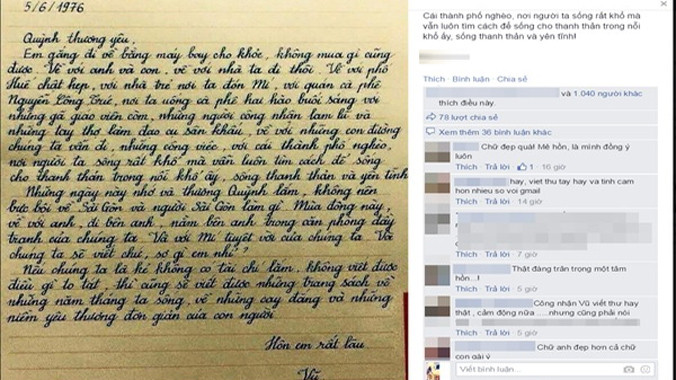 5/6/1976
Quỳnh thương yêu,
Em gắng đi về bằng máy bay cho khỏe, không mua gì cũng
được. Về với anh và con, về với nhà ta đi thôi. Về với phố
Huế chật hẹp, với nhà trẻ nơi ta đón Mí, với quán cà phê
Nguyễn Công Trứ, nơi ta uống cà phê hai hào buổi sáng với
những gã giáo viên còm, những người công nhân lam lũ và
những tay thợ làm đạo cụ sân khấu, về với những con đường
chúng ta vẫn đi, những công việc, với cái thành phố nghèo,
nơi người ta sống rất khổ mà vẫn luôn tìm cách để sống
cho thanh thản trong nỗi khổ ấy, sống thanh thản và yên tĩnh
Những ngày này nhớ và thương Quỳnh lắm, không nên
bực bội về Sài Gòn và người Sài Gòn làm gì. Mùa đông này,
về với anh, đi bên anh, nằm bên anh trong căn phòng đầy
tranh của chúng ta. Và với Mí tuyệt vời của chúng ta. Và
chúng ta sẽ viết chứ, sợ gì em nhỉ?
Nếu chúng ta là kẻ không có tài chí lắm, không viết được
điều gì to tát, thì cũng sẽ viết được những trang sách về
những năm tháng ta sống, về những cay đắng và những
niềm yêu thương đơn giản của con người.
Hôn em rất lâu
Vũ
Cái thành phố nghèo, nơi người ta sống rất khổ mà
vẫn luôn tìm cách để sống cho thanh thản trong nỗi
khổ ấy, sống thanh thản và yên tĩnh!
Thích · Bình luận · Chia sẻ
và 1.040 người khác
thích điều này.
78 lượt chia sẻ
Xem thêm 36 bình luận khác
Chữ đẹp quá! Mê hồn, là mình đồng ý
luôn
Thích · Trả lời · 1 · 16 giờ
hay, viet thu tay hay va tinh cam
hon nhieu so voi gmail
Thích · Trả lời · 14 giờ
Thích · Trả lời · 7 giờ
Thật đáng trân trọng một tâm
hồn...!
Thích · Trả lời · 5 giờ
Công nhận Vũ viết thư hay
thật , cảm động nữa .....nhưng cũng phải nói
Thích · Trả lời · 5 giờ
Chữ anh đẹp hơn cả chữ
con gái ý
Viết bình luận...